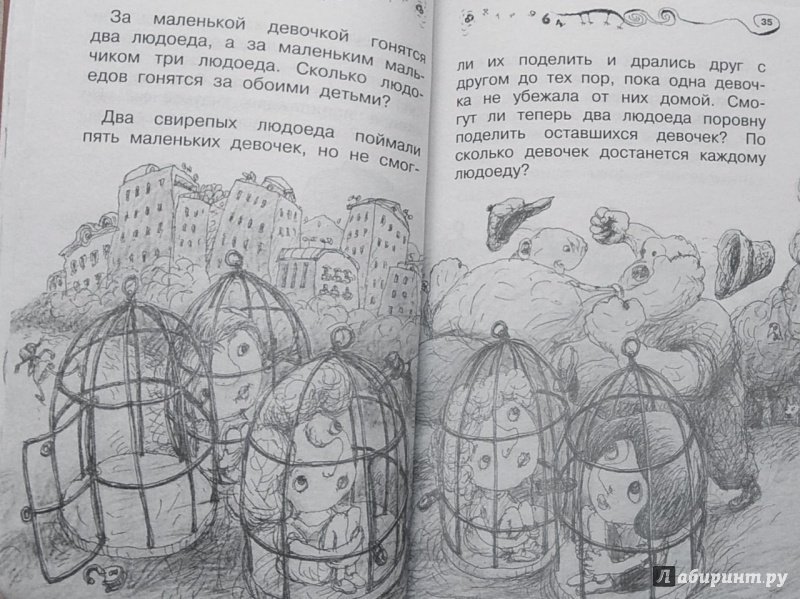 За маленькой девочкой гонятся
два людоеда, а за маленьким маль-
чиком три людоеда. Сколько людо-
едов гонятся за обоими детьми?
Два свирепых людоеда поймали
пять маленьких девочек, но не смог-
35
ли их поделить и дрались друг с
другом до тех пор, пока одна девоч-
ка не убежала от них домой. Смо-
гут ли теперь два людоеда поровну
поделить оставшихся девочек? По
сколько девочек достанется каждому
людоеду?
Лабиринт.ру